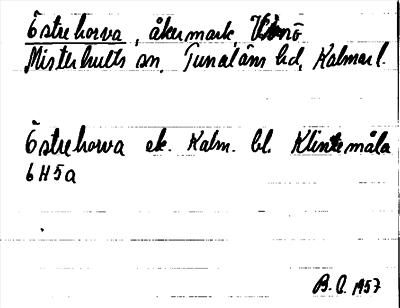 Östrehorva, åkermark, Vinö
Misterhults sn, Tunaläns hd, Kalmar l.
Östrehorva ek. Kalm. bl. Klintemåla
6H5a
B.O. 1957